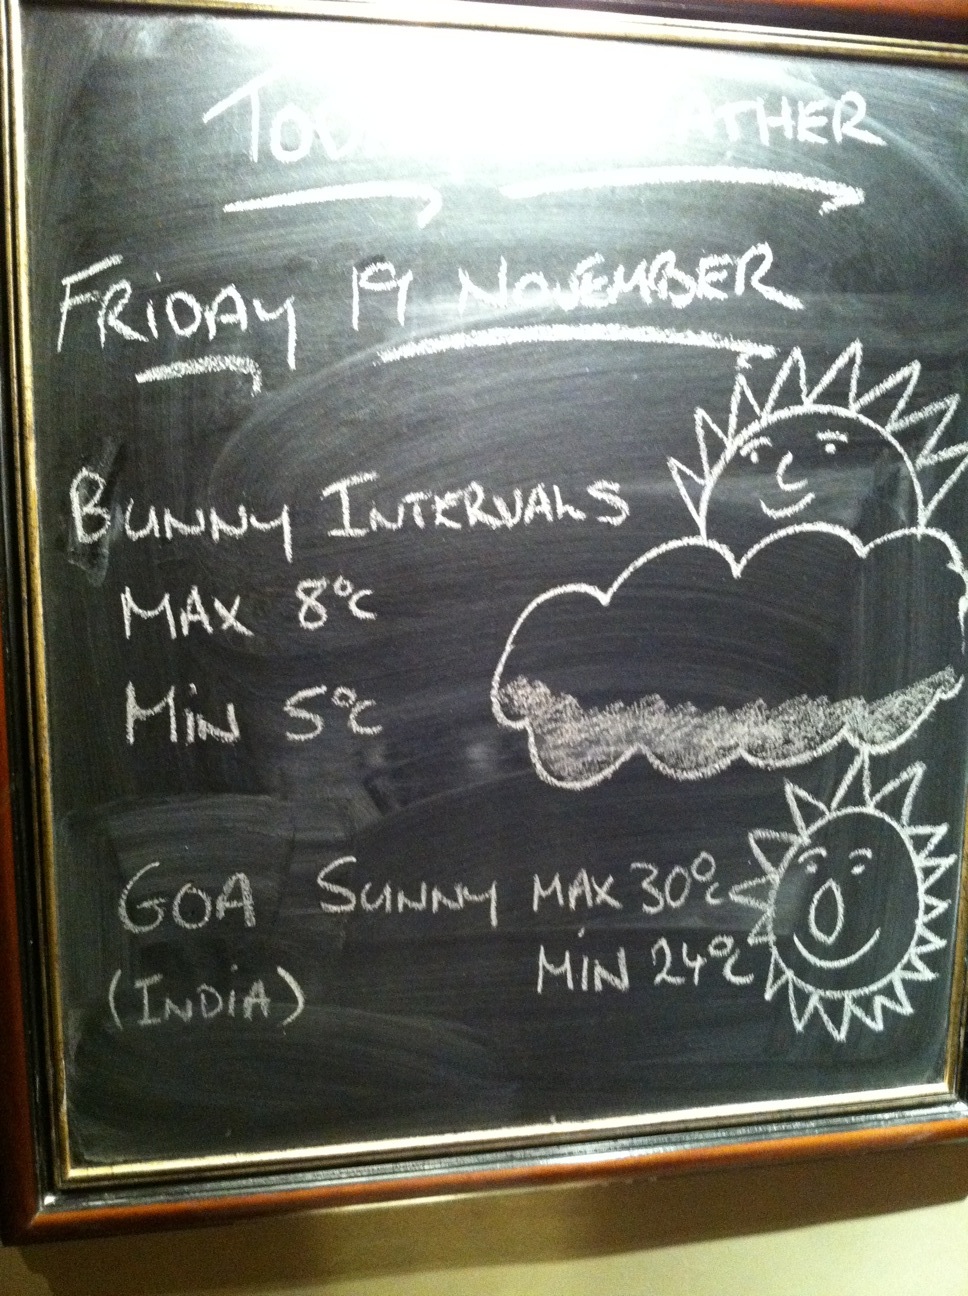 FRIDAY 19 NOVEMBER
BUNNY INTERVALS
MAX 8°C
MIN 5°C
GOA SUNNY MAX 30°C
(INDIA) MIN 24°C